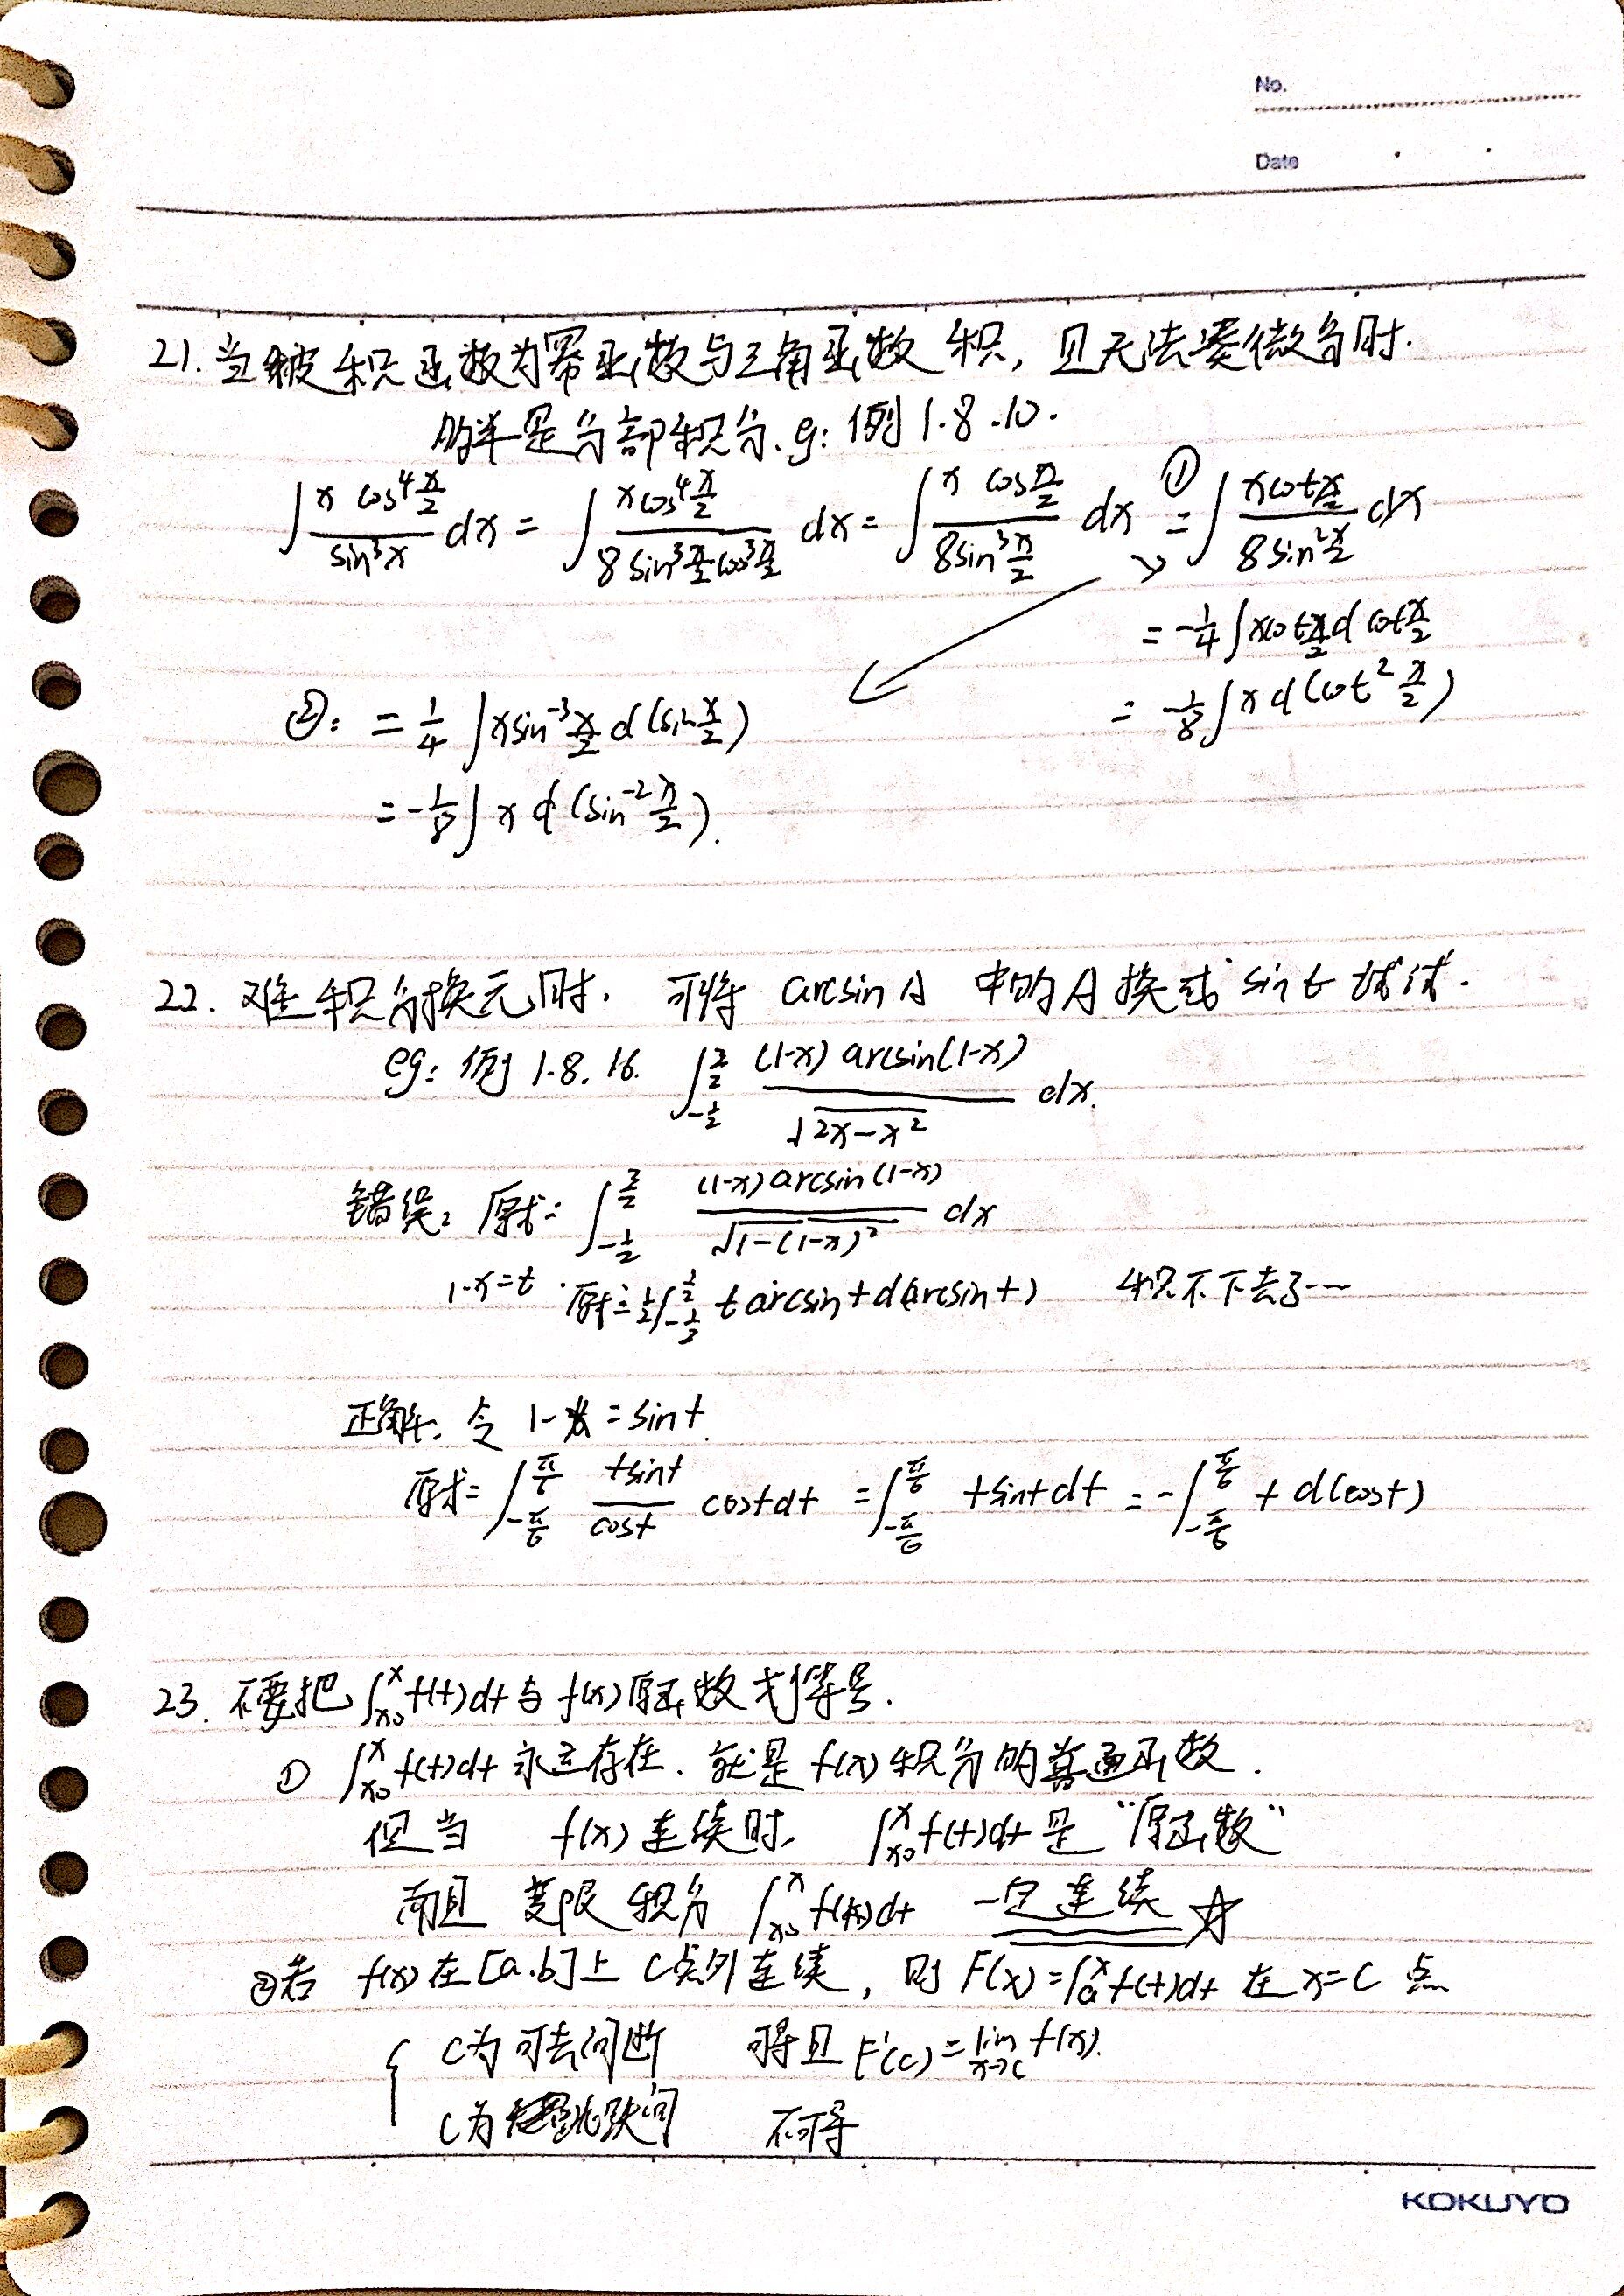 No.
Date
21. 当被积函数为幂函数与三角函数积, 且无法凑微分时.
的半是分部积分. eg: 例 1.8.10.
∫ (x cos⁴ x/2)/(sin³x) dx = ∫ (x cos⁴ x/2)/(8 sin³ x/2 cos³ x/2) dx = ∫ (x cos x/2)/(8 sin³ x/2) dx ① = ∫ (x cot x/2)/(8 sin² x/2) dx
= -1/4 ∫ x cot x/2 d cot x/2
= -1/8 ∫ x d(cot² x/2)
②: = 1/4 ∫ x sin⁻³ x/2 d(sin x/2)
= -1/8 ∫ x d(sin⁻² x/2).
22. 难积分换元时. 可将 arcsin A 中的 A 换成 sin t 试试.
eg: 例 1.8.16. ∫_{-1/2}^{3/2} ((1-x) arcsin(1-x))/√(2x-x²) dx.
错误: 原式= ∫_{-1/2}^{3/2} ((1-x) arcsin(1-x))/√(1-(1-x)²) dx
1-x=t. 原式= 1/2 ∫_{-1/2}^{1/2} t arcsin t d(arcsin t) 积不下去了…
正解: 令 1-x = sin t.
原式= ∫_{-π/6}^{π/6} (t sin t)/(cos t) cos t dt = ∫_{-π/6}^{π/6} t sin t dt = -∫_{-π/6}^{π/6} t d(cos t)
23. 不要把 ∫_{x₀}^{x} f(t)dt 与 f(x) 原函数划等号.
① ∫_{x₀}^{x} f(t)dt 永远存在. 就是 f(x) 积分的普通函数.
但当 f(x) 连续时, ∫_{x₀}^{x} f(t)dt 是 "原函数"
而且 变限积分 ∫_{x₀}^{x} f(t)dt 一定连续 ☆
②若 f(x) 在 [a,b] 上 C点外连续, 则 F(x) = ∫_{a}^{x} f(t)dt 在 x=C 点
{ C为可去间断 可导且 F'(c) = lim_{x→c} f(x).
C为跳跃间 不可导
KOKUYO